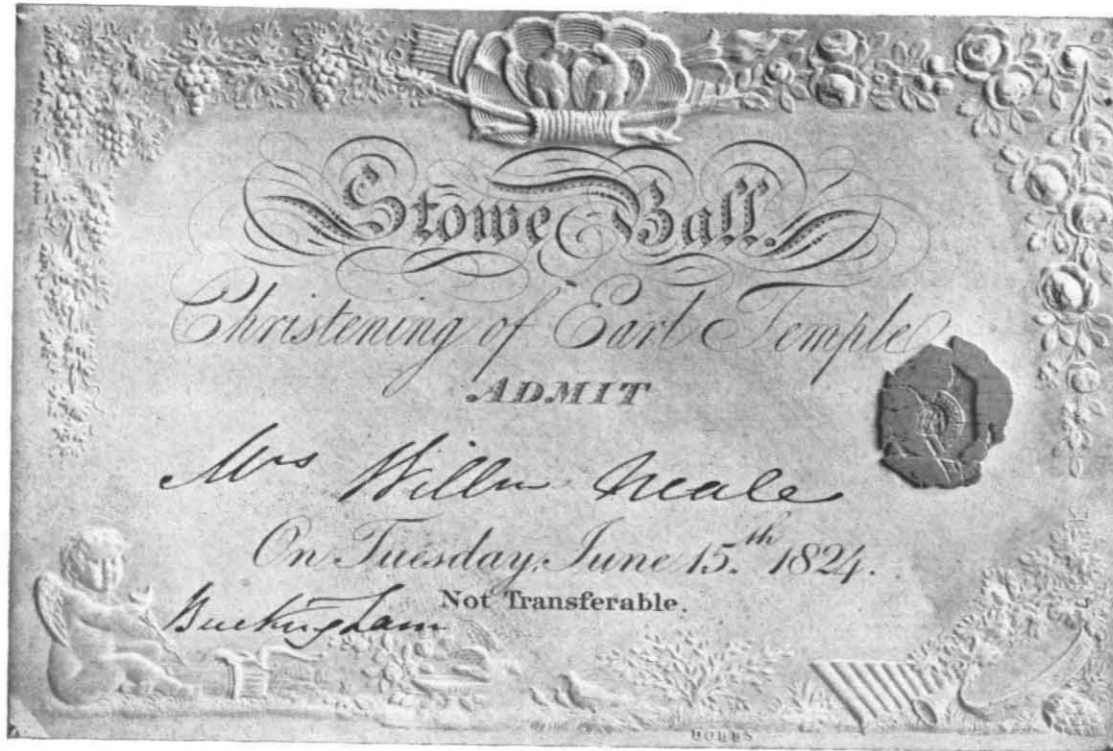 Stowe Ball.
Christening of Earl Temple
ADMIT
Mrs Willm Neale
On Tuesday, June 15.th 1824.
Not Transferable.
Buckingham
DOBBS